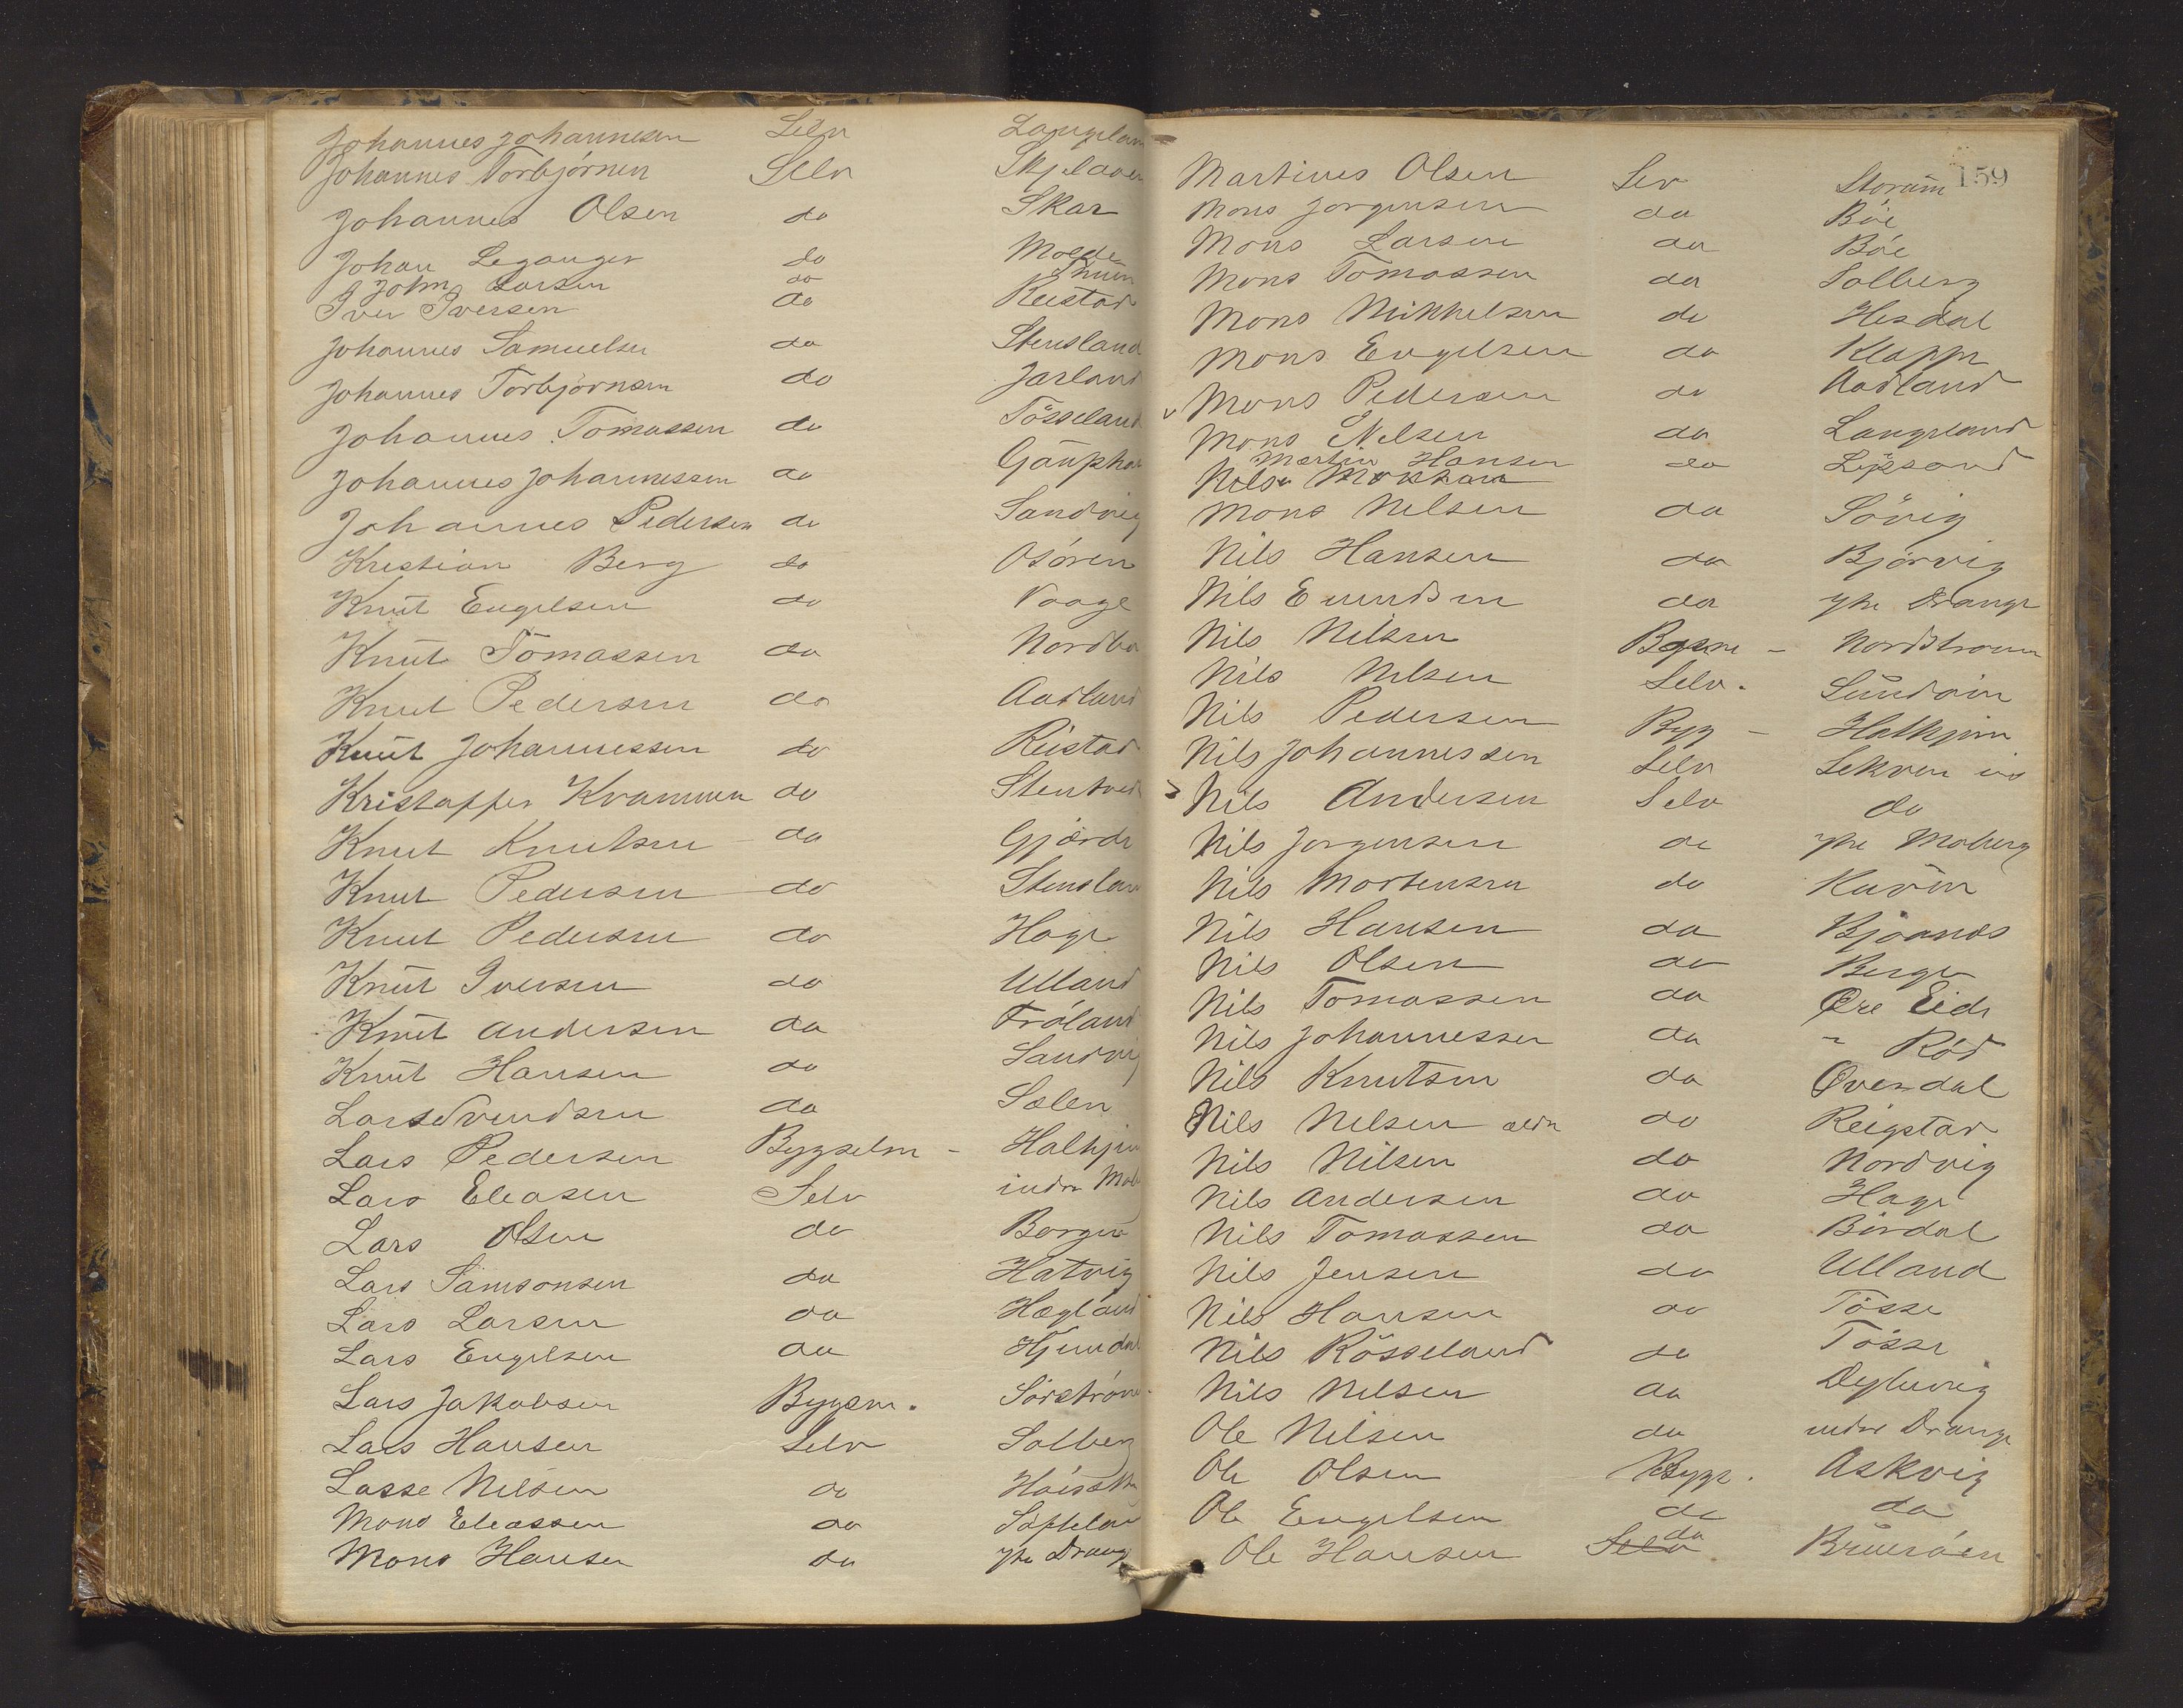 Johannes Johannesen Selv Langelan
Johannes Torbjörnen Selv Skjelaven
Johannes Olsen do Skar
Johan Leganger do Moldegaard
John Larsen do
Iver Iversen do Reistad
Johannes Samuelsen do Stensland
Johannes Torbjörnsen do Jarland
Johannes Tomassen do Tösseland
Johannes Johannessen do Gäuphol
Johannes Pedersen do Sandvig
Kristian Berg do Osören
Knut Engelsen do Vaage
Knut Tomassen do Nordbø
Knut Pedersen do Aadland
Knut Johannessen do Reistad
Kristoffer Kvammen do Stentved
Knut Knutsen do Gjærde
Knut Pedersen do Stenslan
Knut Pedersen do Hage
Knut Iversen do Ulland
Knut Andersen do Fröland
Knut Hansen do Sandvig
Lars Svendsen do Sælen
Lars Pedersen Bygselm - Halhjem
Lars Eleasen Selv indre Mob
Lars Olsen do Borgen
Lars Samsonsen do Hatvig
Lars Larsen do Hægland
Lars Engelsen do Hjemdal
Lars Jakobsen Bygsm. Sörström
Lars Hansen Selv Solberg
Lasse Nilsen do Höisæter
Mons Eleassen do Söfteland
Mons Hansen do ytre Drange
159
Martines Olsen Selv Storum
Mons Jorgensen do Böe
Mons Larsen do Böe
Mons Tomassen do Solberg
Mons Mikkelsen do Hesdal
Mons Engelsen do Klappe
v Mons Pedersen do Aadland
Mons Nelsen do Langeland
Martin Hansen do Lepsand
Nils Monsen
Mons Nelsen do Sövig
Nils Hansen do Björvig
Nils Emundsen do ytre Drange
Nils Nilsen Bygsm - Nordstrømen
Nils Nelsen Selv. Sundöen
Nils Pedersen Byg - Halhjem
Nils Johannessen Selv Lekven in
Nils Andersen Selv do
Nils Jorgensen do ytre Moberg
Nils Mortensen do Kuven
Nils Hansen do Bjoanes
Nils Olsen do Berge
Nils Tomassen do Øvre Eide
Nils Johannessen do " Röd
Nils Knutsen do Øvredal
Nils Nelsen ældre do Reigstad
Nils Nilsen do Nordvig
Nils Andersen do Hage
Nils Tomassen do Bördal
Nils Jensen do Ulland
Nils Hansen do Tösse
Nils Rösseland do Tösse
Nils Nelsen do Døsvig
Ole Nilsen do indre Drange
Ole Olsen Bygs. Askvig
Ole Engelsen do do
Ole Hansen Selv do Bruaröen